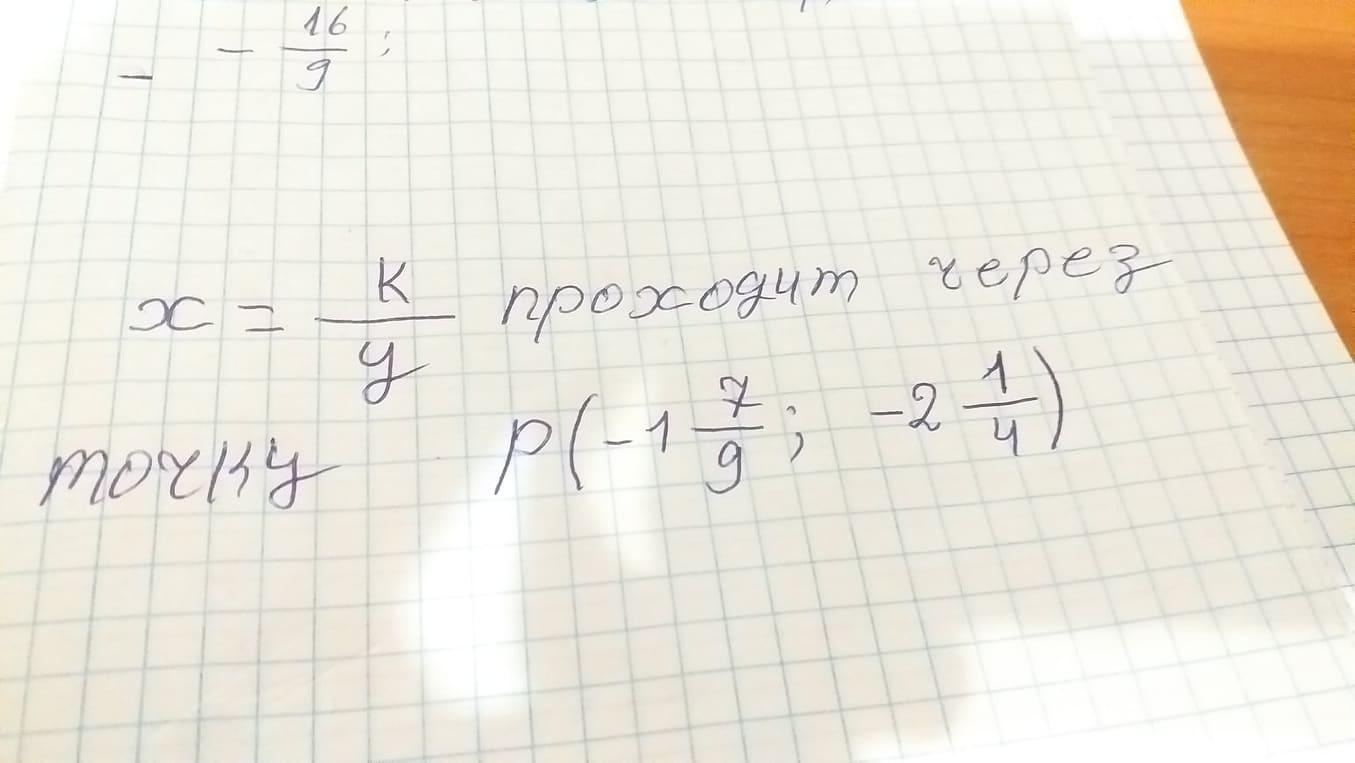 - - 16/9 ;
x = K/y проходит через
точку P(-1 7/9; -2 1/4)